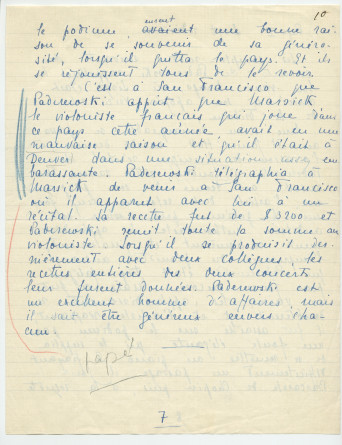 10
le podium, eurent avaient une bonne rai-
son de se souvenir de sa généro-
sité, lorsqu'il quitta le pays. Et ils
se réjouissent tous de le revoir.
C'est à San Francisco que
Paderewski apprit que Marsick
le violoniste français qui joua dans
ce pays cette année, avait eu une
mauvaise saison et qu'il était à
Denver dans une situation assez em-
barassante. Paderewski télégraphia à
Marsick de venir à San Francisco
où il apparut avec lui à un
récital. La recette fut de $ 3200 et
Paderewski remit toute la somme au
violoniste. Lorsqu'il se produisit der-
nièrement avec deux collègues, les
recettes entières des deux concerts
leur furent données. Paderewski est
un excellent homme d'affaires, mais
il sait être généreux envers cha-
cun.
tapé
7